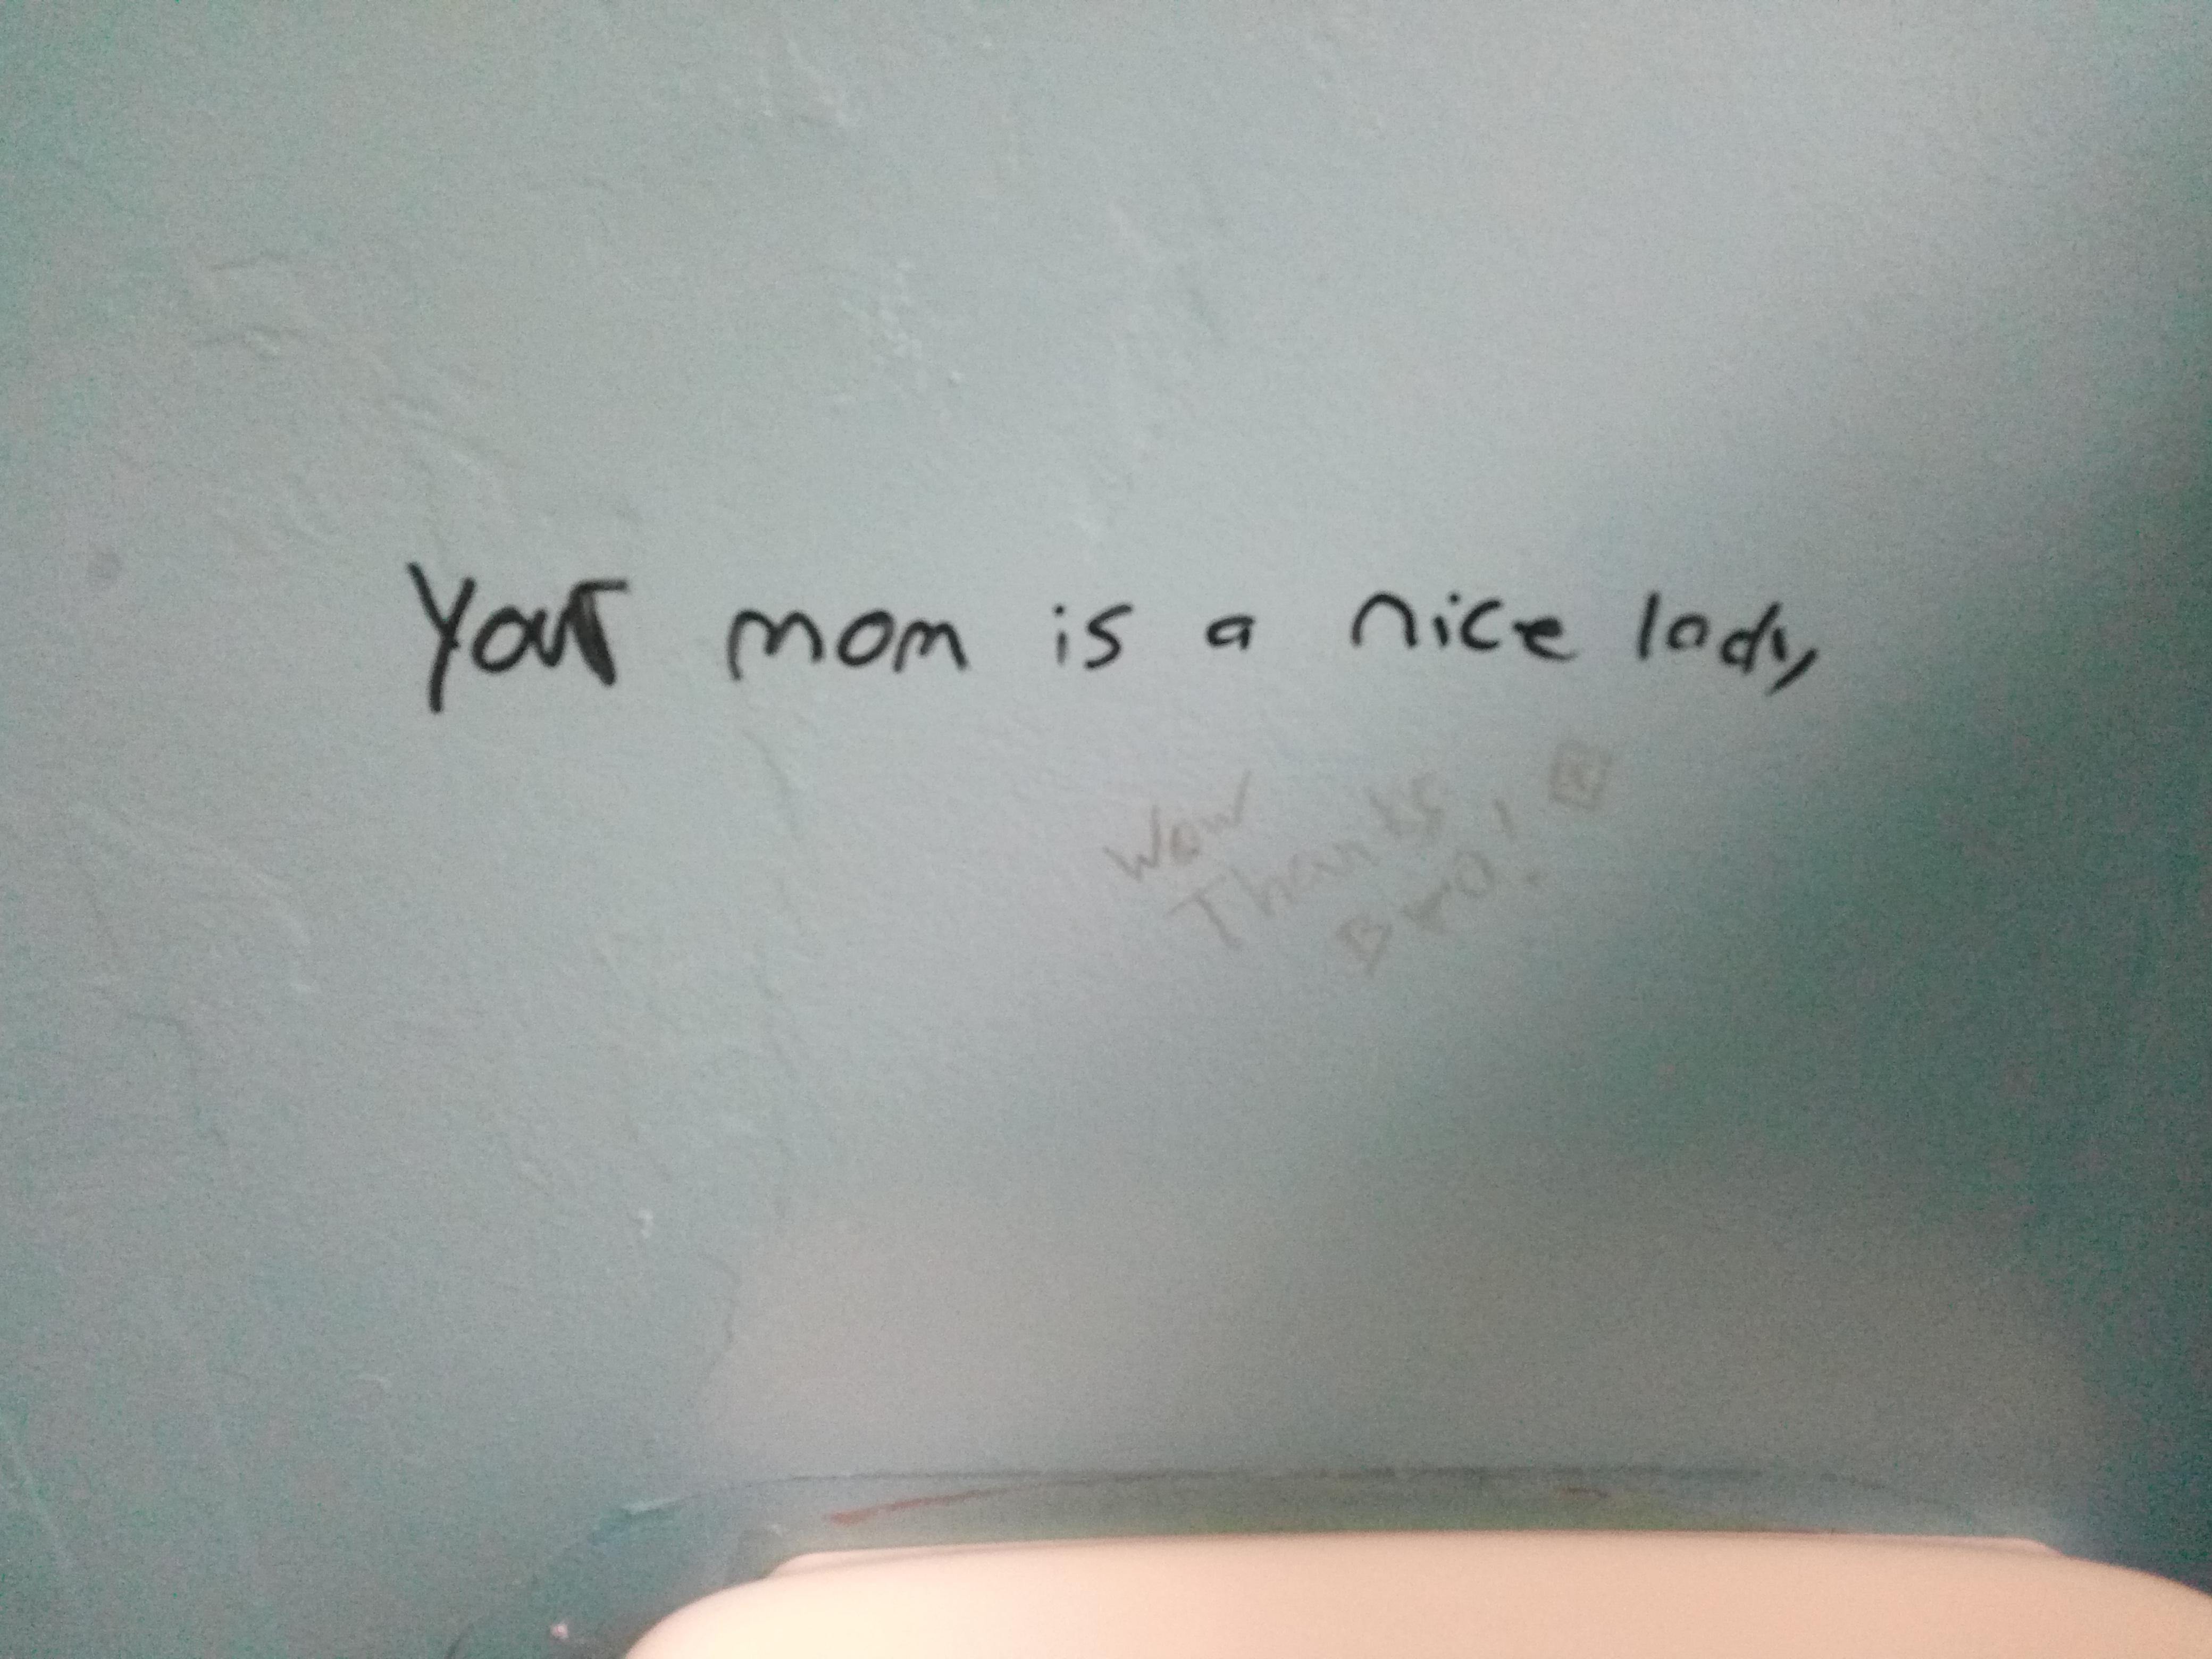 Your mom is a nice lady
Wow
Thanks,
Bro.